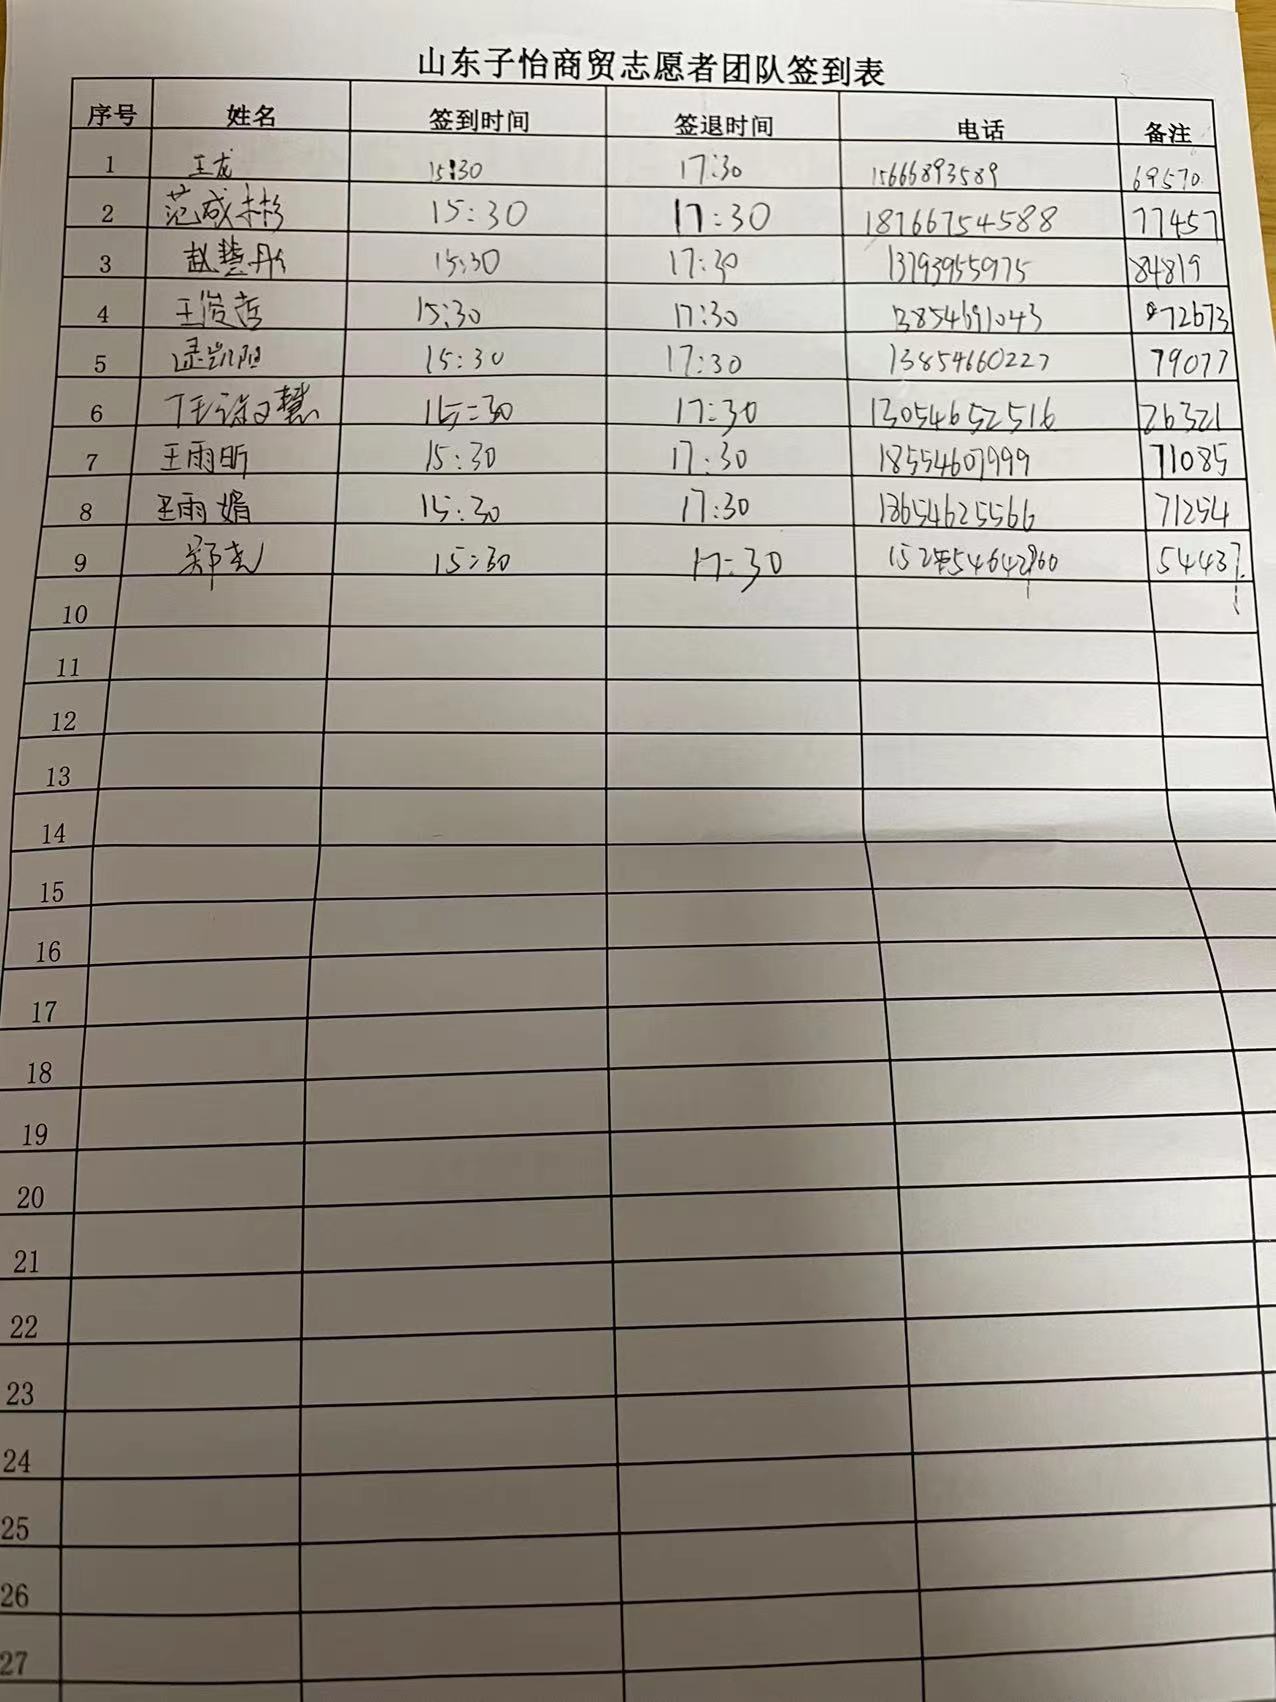 山东子怡商贸志愿者团队签到表
序号 姓名 签到时间 签退时间 电话 备注
1 王龙 15:30 17:30 15666893589 69570
2 范成彬 15:30 17:30 18766754588 77457
3 赵慧彤 15:30 17:30 13793955975 84819
4 王俊哲 15:30 17:30 13854691043 72673
5 孟凯阳 15:30 17:30 13854660227 79077
6 15:30 17:30 13054652516 26321
7 王雨昕 15:30 17:30 18554607999 71085
8 王雨婿 15:30 17:30 18654625566 71254
9 郑克 15:30 17:30 54437
10
11
12
13
14
15
16
17
18
19
20
21
22
23
24
25
26
27